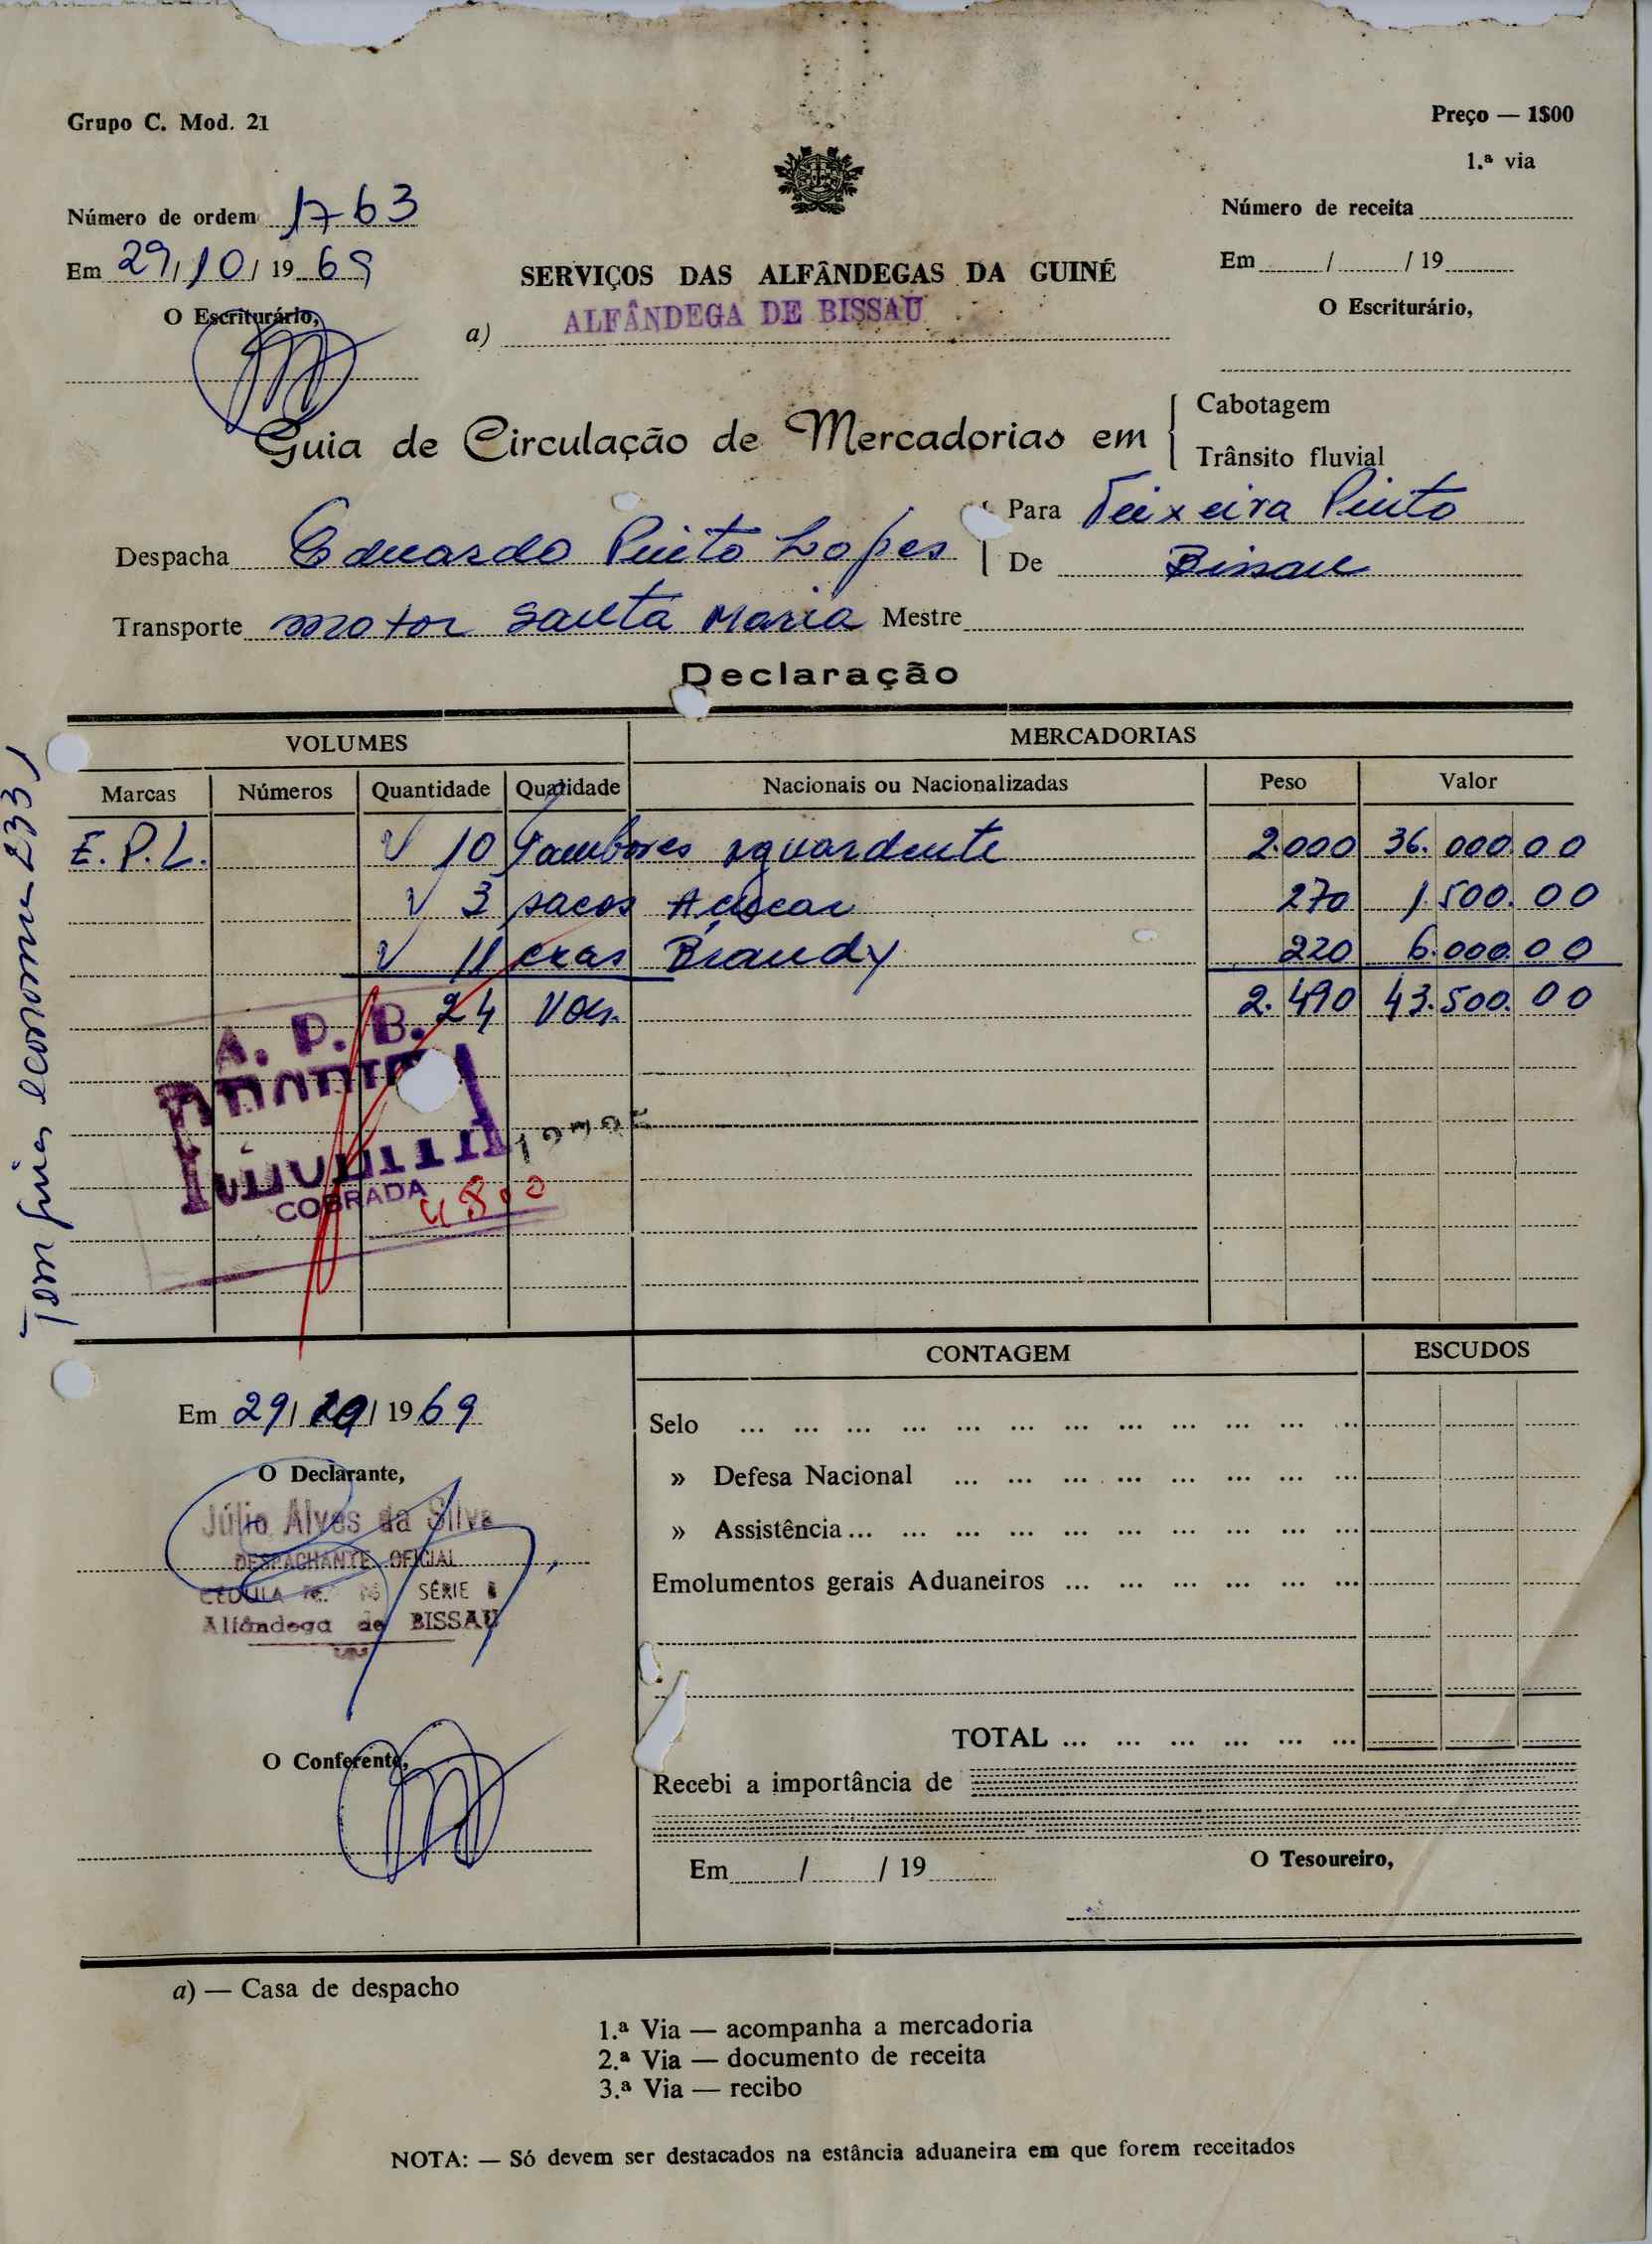 Grupo C. Mod. 21
Preço — 1$00
1.ª via
Número de ordem 1763
Número de receita
Em 29/10/1969
Em / /19
O Escriturário,
O Escriturário,
SERVIÇOS DAS ALFÂNDEGAS DA GUINÉ
a) ALFÂNDEGA DE BISSAU
Guia de Circulação de Mercadorias em
Cabotagem
Trânsito fluvial
Despacha Eduardo Pinto Lopes
Para Teixeira Pinto
De Bissau
Transporte motor Santa Maria Mestre
Declaração
VOLUMES MERCADORIAS
Marcas Números Quantidade Qualidade Nacionais ou Nacionalizadas Peso Valor
E.P.L. 10 Tambores aguardente 2.000 36.000.00
3 sacos Açucar 270 1.500.00
11 cxas Brandy 220 6.000.00
24 Vols. 2.490 43.500.00
A. P. B.
COBRADA
48.0
Tem guia economia 233
CONTAGEM ESCUDOS
Em 29/10/1969
O Declarante,
Júlio Alves da Silva
DESPACHANTE OFICIAL
CÉDULA SÉRIE
Alfândega de BISSAU
O Conferente,
Selo ... ... ... ... ... ... ... ... ... ... ... ...
» Defesa Nacional ... ... ... ... ... ... ... ...
» Assistência ... ... ... ... ... ... ... ... ... ...
Emolumentos gerais Aduaneiros ... ... ... ... ... ...
TOTAL ... ... ... ... ... ...
Recebi a importância de
Em / /19
O Tesoureiro,
a) — Casa de despacho
1.ª Via — acompanha a mercadoria
2.ª Via — documento de receita
3.ª Via — recibo
NOTA: — Só devem ser destacados na estância aduaneira em que forem receitados